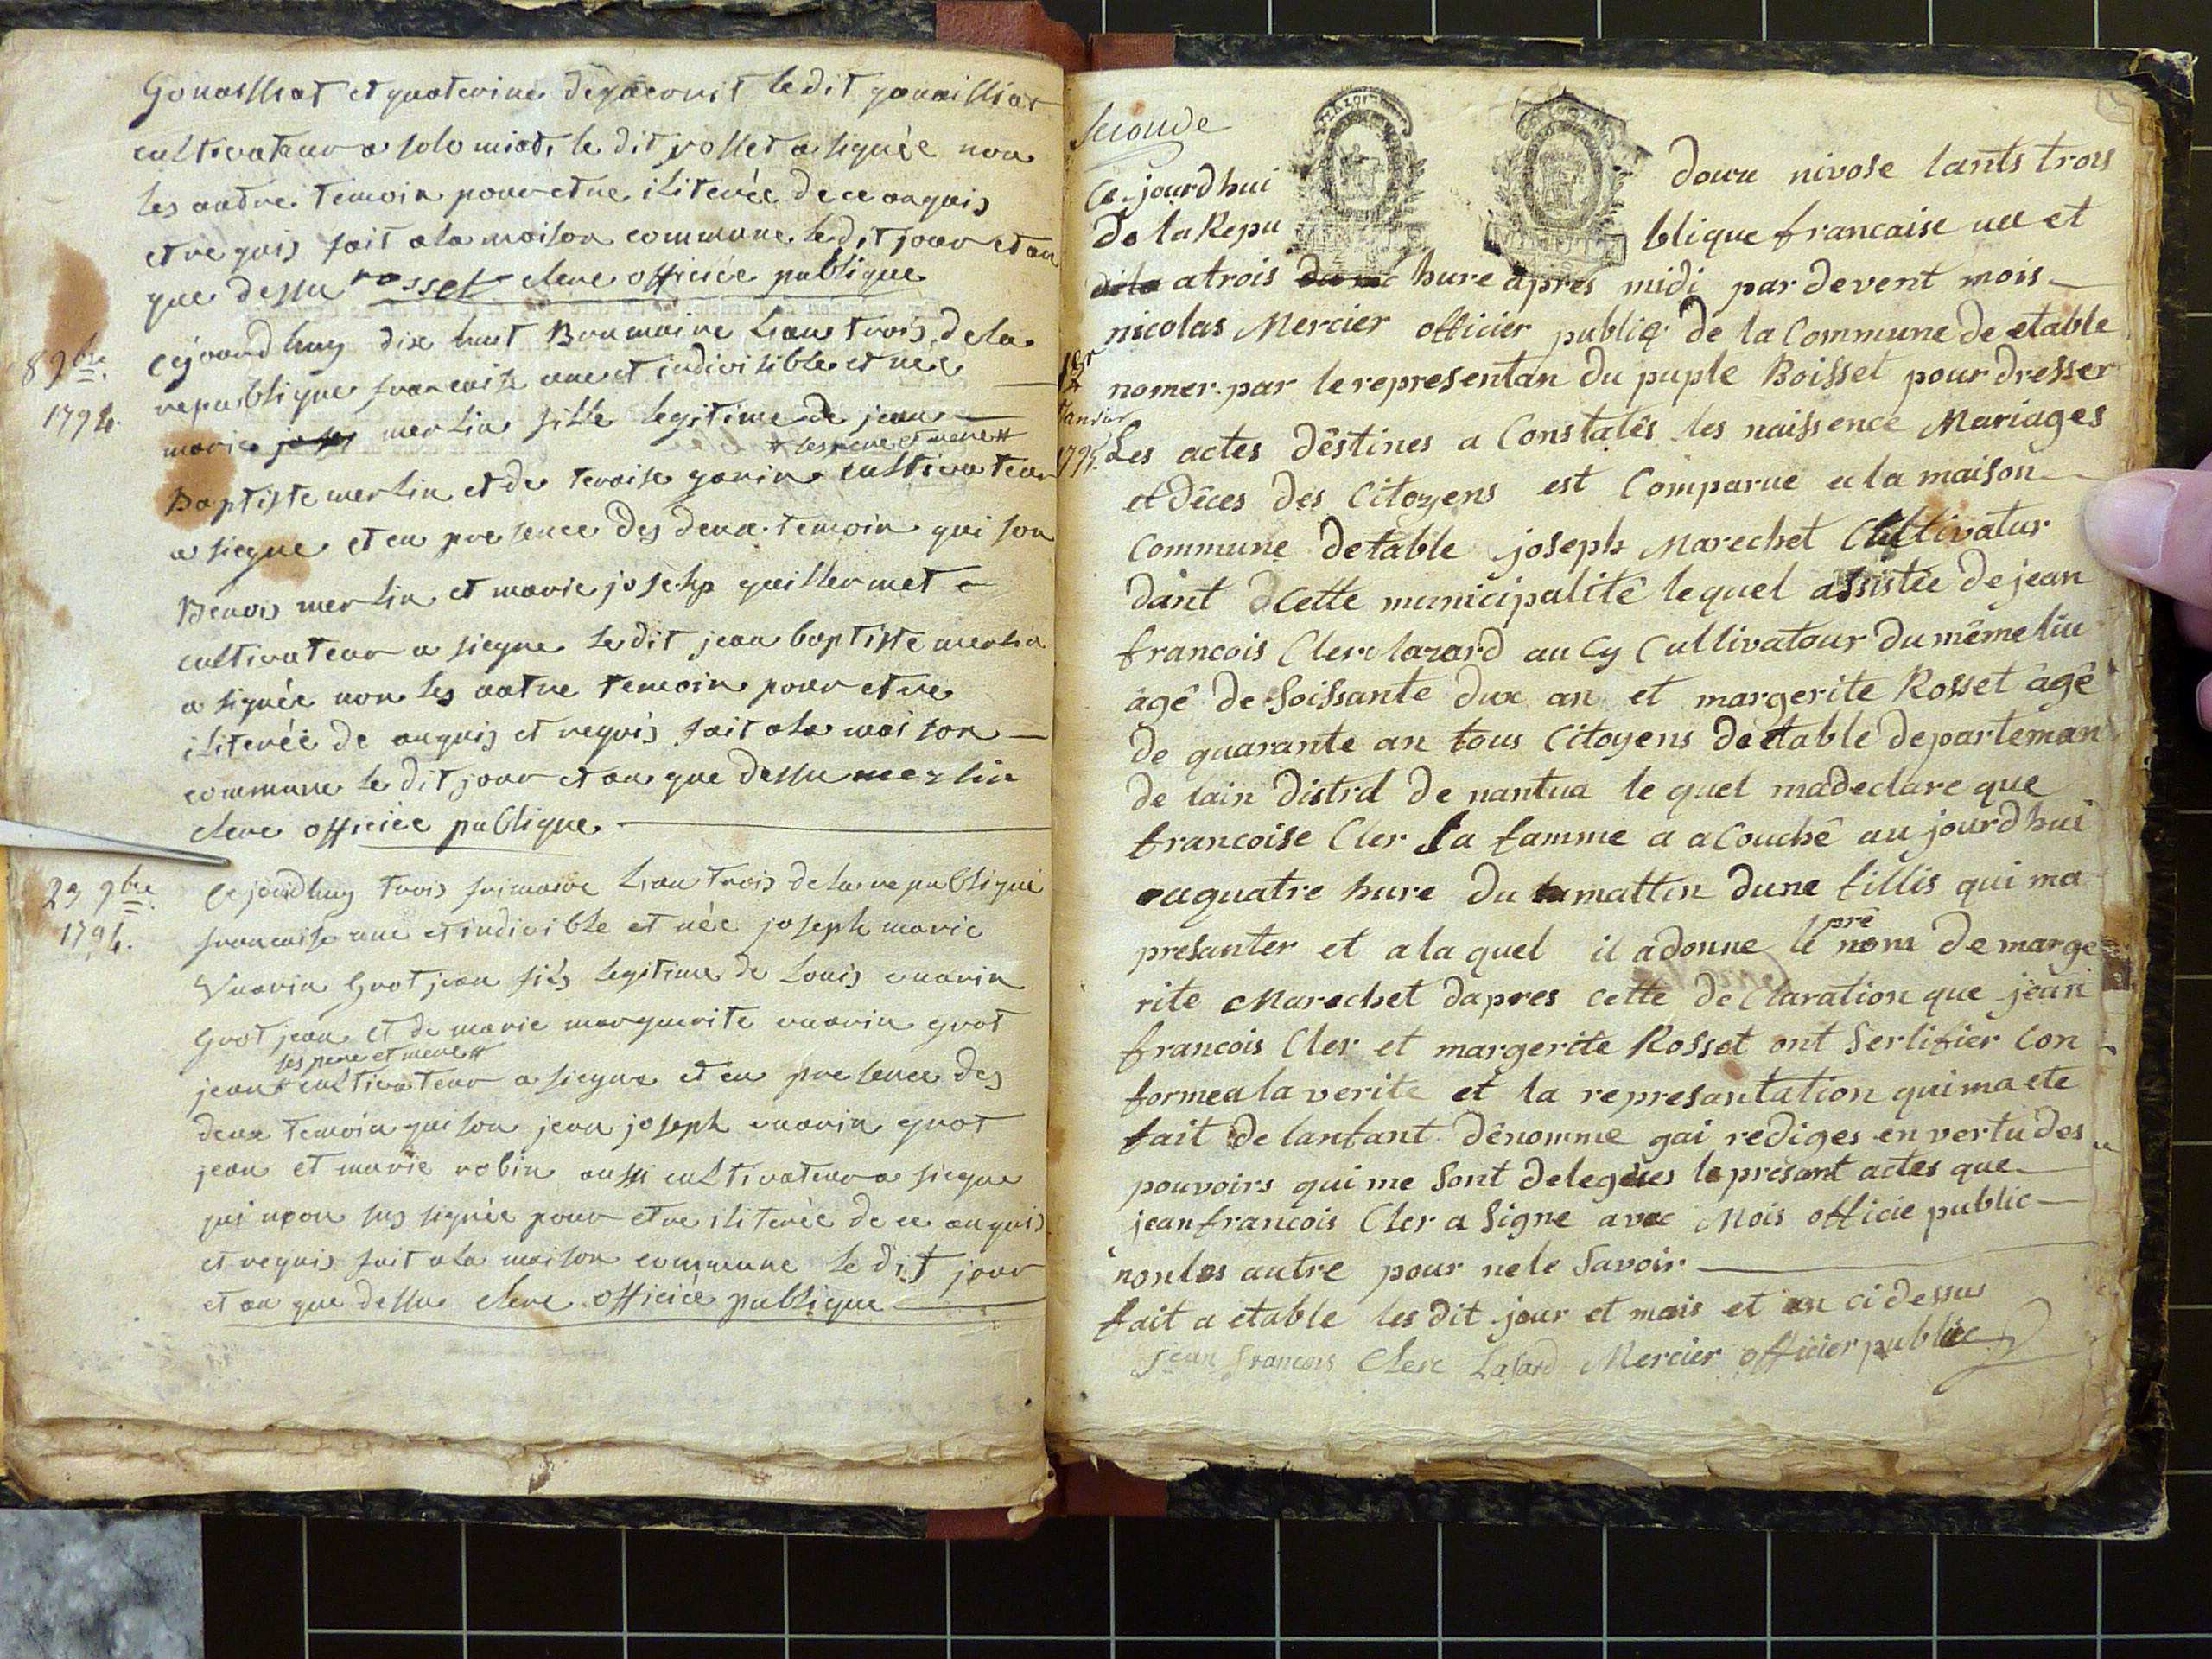 Gonaillat et quaterine deqaernit le dit gonailliat
cultivateur a solomiat, le dit rosset a signée non
les autre temoin pour etre iliterée de ce anquis
et requis fait a la maison commune le dit jour et an
que dessu rosset clerc officiée publique
8 9bre 1794.
Cejourdhuy dix huit Brumaire lan trois de la
republique francaise une et indivisible et née
marie merlin fille legitime de jean
# ses pere et mere #
Baptiste merlin et de teraise garin cultivateur
a siegne et en presence des deux temoin qui son
Benois merlin et marie josehp guillermet
cultivateur a siegne le dit jean baptiste merlin
a signée non les autre temoin pour etre
iliterée de anquis et requis fait a la maison
commune le dit jour et an que dessu merlin
clerc officiée publique
23 9bre 1794.
Cejourdhuy trois frimaire lan trois de la republique
francaise une et indivisible et née joseph marie
Vuarin Grosjean fils legitime de Louis vuarin
Grot jean et de marie marguerite vuarin grot
ses pere et mere #
jean # cultivateur a siegne et en presence des
deux temoin qui son jean joseph vuarin grot
jean et marie robin aussi cultivateur a siegne
qui non sus signée pour etre iliterée de ce anquis
et requis fait a la maison commune le dit jour
et an que dessu clerc officiée publique
seconde
Ce jourdhui douze nivose lants trois
De la Repu blique francaise une et
a trois hure apres midi par devent mois
1er Janvier 1795.
nicolas Mercier officier publiq de la Commune de etable
nomer par le representan du puple Boisset pour dresser
Les actes dêstines a Constatês les naissence Mariages
et dêces des Citoyens est Comparue a la maison
Commune detable joseph Marechet Cultivatur
dant dCette municipalitê lequel assistée de jean
francois Cler lazard au Cy Cultivatour du même liu
âgê de Soissante dux an et margerite Rosset âgê
de quarante an tous Citoyens de etable departeman
de lain distrd de nantua le quel madeclare que
francoise Cler sa famme a acouchê au jourdhui
a quatre hure du mattin dune fillis qui ma
presanter et a la quel il a donne le
prê
nom de marge
rite Marechet dapres cette declaration que jean
francois Cler et margerite Rosset ont Sertifier Con
forme a la verite et la represantation qui ma ete
fait de lanfant dênomme gai rediges en vertu des
pouvoirs qui me Sont delegues le presant actes que
jean francois Cler a Signe avec Mois officie public
non les autre pour ne le Savoir
fait a etable les dit jour et mais et an ci dessus
jean francois Clerc Lasard Mercier officier public